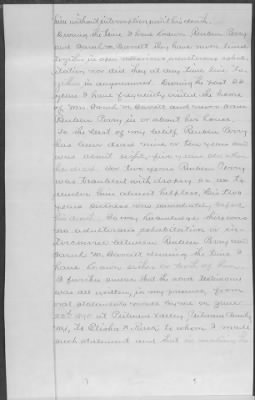 him without interruption until his death.
During the time I have known Reuben Perry
and Sarah M. Barrett they have never lived
together in open notorious adulterous cohab-
itation nor did they at any time live to-
gether in any manner. During the past 20
years I have frequently visited the home
of Mrs. Sarah M. Barrett and never saw
Reuben Perry in or about her house.
To the best of my belief Reuben Perry
has been dead nine or ten years and
was about eighty five years old when
he died. For two years Reuben Perry
was troubled with dropsy so as to
render him almost helpless, his two
years sickness was immediately before
his death. To my knowledge there was
no adulterous cohabitation or in-
tercourse between Reuben Perry and
Sarah M. Barrett during the time I
have known either or both of them.
I further swear that the above testimony
was all written, in my presence, from
oral statements made by me on June
20th 1890 at Putnam Valley, Putnam County,
N.Y. to Elisha to whom I made
such statement and that in making the